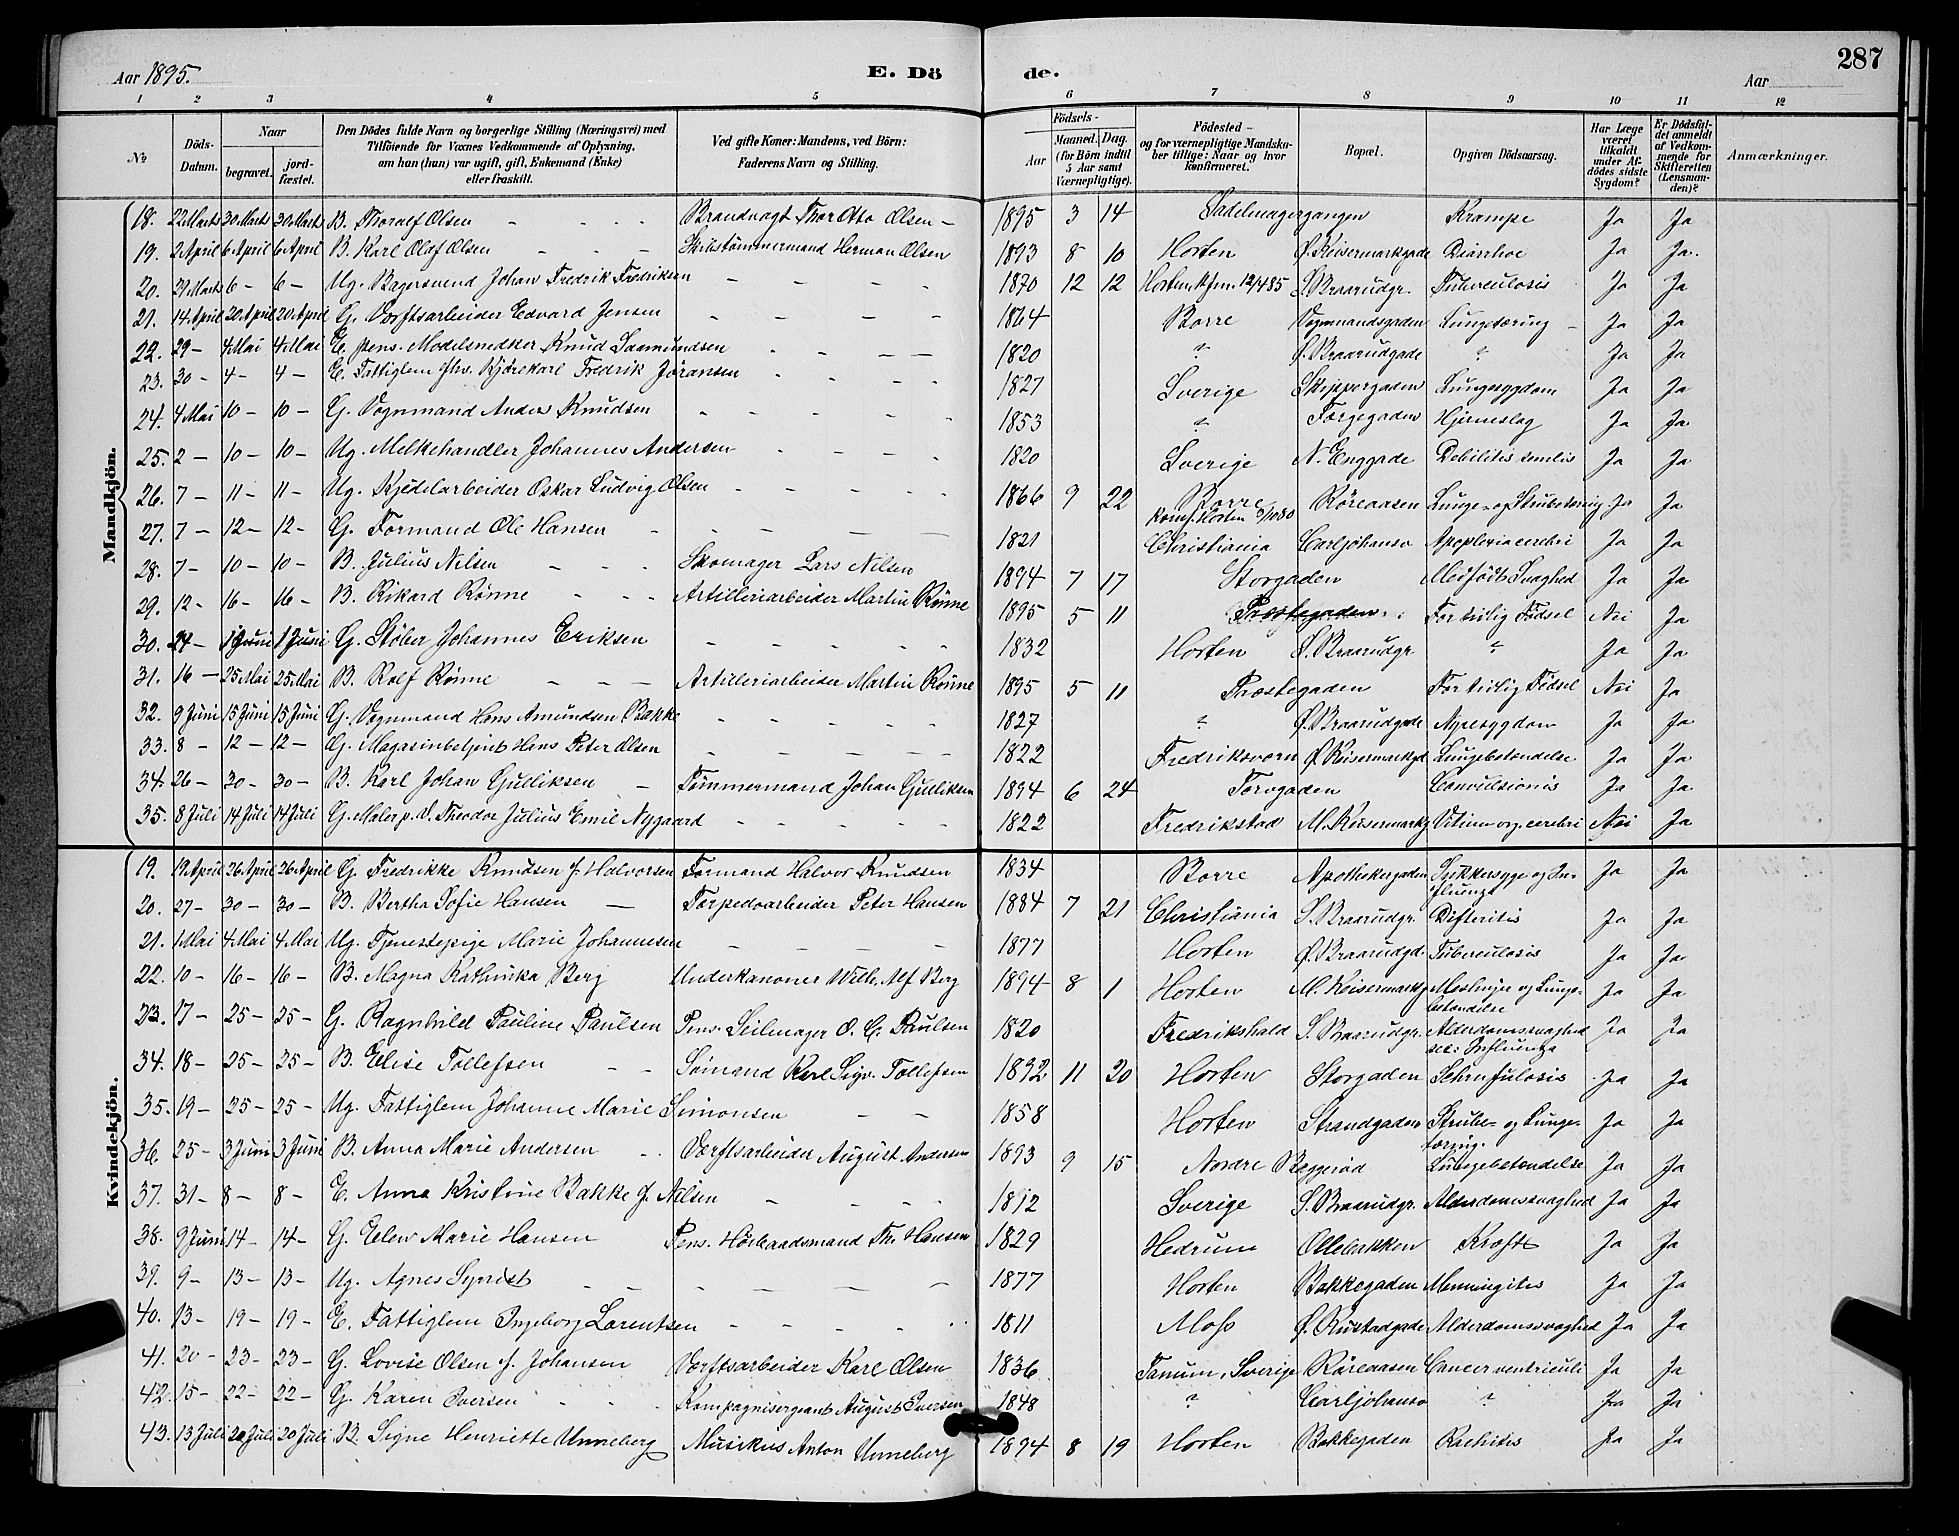 Aar 1895.
E. Döde.
Aar
287
1 2 3 4 5 6 7 8 9 10 11 12
No
Döds-Datum.
Naar begravet. jordfæstet.
Den Dödes fulde Navn og borgerlige Stilling (Næringsvei) med Tilföiende for Voxnes Vedkommende af Oplysning, om han (hun) var ugift, gift, Enkemand (Enke) eller fraskilt.
Ved gifte Koner: Mandens, ved Börn: Faderens Navn og Stilling.
Födsels- Aar Maaned. Dag. (for Börn indtil 5 Aar samt Værnepligtige).
Födested - og for værnepligtige Mandskaber tillige: Naar og hvor Konfirmeret.
Bopæl.
Opgiven Dödsaarsag.
Har Læge været tilkaldt under Afdödes sidste Sygdom?
Er Dödsfaldet anmeldt af Vedkommende for Skifteretten (Lensmanden)?
Anmærkninger.
Mandkjön.
18. 22 Marts 30 Marts 30 Marts B. Thoralf Olsen - - - Brandvagt Thor Otto Olsen - 1895 3 14 Sadelmagergangen Krampe Ja Ja
19. 2 April 6 April 6 April B. Karl Olaf Olsen - - - Skibstömmermand Herman Olsen 1893 8 10 Horten Ø. Keisermarkgade Diarrhoe Ja Ja
20. 29 Marts 6 - 6 - Ug. Bagersvend Johan Fredrik Fredriksen - - - - 1870 12 12 Horten Kfm. 12/4 85 S. Braarudgr. Tuberculosis Ja Ja
21. 14 April 20 April 20 April G. Værftsarbeider Edvard Jensen - - - - 1864 Borre Vognmandsgaden Lungetæring - Ja Ja
22. 29 - 4 Mai 4 Mai E. pens. Modelsnedker Knud Saamundsen - - - - 1820 ? Ø. Braarudgade ? Ja Ja
23. 30 - 4 - 4 - E. Fattiglem fhv. Kjörekarl Fredrik Jöransen - - - - 1827 Sverige Skippergaden Lungesygdom Ja Ja
24. 4 Mai 10 - 10 - G. Vognmand Anders Knudsen - - - - 1853 ? Torgegaden Hjerneslag Ja Ja
25. 2 - 10 - 10 - Ug. Melkehandler Johannes Andersen - - - - 1820 Sverige N. Enggade Debilitis senilis Ja Ja
26. 7 - 11 - 11 - Ug. Kjedelarbeider Oskar Ludvig Olsen - - - - 1866 9 22 Borre Konf. Horten 3/10 80 Röreaasen Lunge- og Strubetæring Ja Ja
27. 7 - 12 - 12 - G. Formand Ole Hansen - - - - 1821 Christiania Carljohansv Apoplexia cerebri Ja Ja
28. 7 - 10 - 10 - B. Julius Nilsen - - - Skomager Lars Nilsen 1894 7 17 Storgaden Medfödt Svaghed Ja Ja
29. 12 - 16 - 16 - B. Rikard Rönne - - - Artilleriarbeider Martin Rönne 1895 5 11 Præstegaden For tidlig Födsel Nei Ja
30. 24 - 1 Juni 1 Juni G. Stöber Johannes Eriksen - - - - 1832 Horten S. Braarudgr ? Ja Ja
31. 16 - 25 Mai 25 Mai B. Rolf Rönne - - - Artilleriarbeider Martin Rönne 1895 5 11 Præstegaden For tidlig Födsel Nei Ja
32. 9 Juni 15 Juni 15 Juni G. Vognmand Hans Amundsen Bakke - - - - 1827 ? Ø. Braarudgade Nyresygdom Ja Ja
33. 8 - 12 - 12 - G. Magasinbetjent Hans Peter Olsen - - - - 1822 Fredriksværn Ø. Keisermarkgd Lungebetændelse Ja Ja
34. 26 - 30 - 30 - B. Karl Johan Gulliksen - Tömmermand Johan Gulliksen 1894 6 24 Torvgaden Convulsionis Ja Ja
35. 8 Juli 14 Juli 14 Juli G. Maler p. V. Theodor Julius Emil Nygaard - - - - 1822 Fredrikstad M. Keisermarkg Vitium org. cerebri Nei Ja
Kvindekjön.
19. 19 April 26 April 26 April G. Fredrikke Knudsen f. Halvorsen Formand Halvor Knudsen 1834 Borre Apothekergaden Sukkersyge og Influenza Ja Ja
20. 27 - 30 - 30 - B. Bertha Sofie Hansen - Torpedoarbeider Peter Hansen 1884 7 21 Christiania S. Braarudgr. Difteritis Ja Ja
21. 1 Mai 4 Mai 4 Mai Ug. Tjenestepige Marie Johannesen - - - - 1877 Horten Ø. Braarudgd. Tuberculosis Ja Ja
22. 10 - 16 - 16 - B. Magna Kathinka Berg Underkanoner Wilh. Alf Berg 1894 8 1 Horten M. Keisermarkg Meslinger og Lungebetændelse Ja Ja
23. 17 - 25 - 25 - G. Ragnhild Pauline Paulsen Pens. Seilmager O. C. Paulsen 1820 Fredrikshald S. Braarudgr. Alderdomssvaghed sec: Influenza Ja Ja
34. 18 - 25 - 25 - B. Elise Tollefsen - - Sömand Karl Sigv. Tollefsen 1892 11 20 Horten Storgaden Scrofulosis Ja Ja
35. 19 - 25 - 25 - Ug. Fattiglem Johanne Marie Simonsen - - 1858 Horten Strandgaden Strube- og Lungetæring. Ja Ja
36. 25 - 3 Juni 3 Juni B. Anna Marie Andersen - - Værftsarbeider August Andersen 1893 9 15 Nordre Baggeröd Lungebetændelse Ja Ja
37. 31 - 8 - 8 - E. Anna Kristine Bakke f. Nilsen - - - 1812 Sverige S. Braarudgr. Alderdomssvaghed Ja Ja
38. 9 Juni 14 - 14 - G. Elen Marie Hansen Pens. Höibaadsmand Th. Hansen 1829 Hedrum Ollebakken Kræft Ja Ja
39. 9 - 13 - 13 - Ug. Agnes Syvrist - - - - 1877 Horten Bakkegaden Menningitis Ja Ja
40. 13 - 19 - 19 - E. Fattiglem Ingeborg Larentsen - - - - 1811 Moss Ø. Rustadgade Alderdomssvaghed Ja Ja
41. 20 - 23 - 23 - G. Lovise Olsen f. Johansen Værftsarbeider Karl Olsen 1836 Tanum, Sverige Röreaasen Cancer ventriculi Ja Ja
42. 15 - 22 - 22 - G. Karen Iversen - - - Kompagnisergeant August Iversen 1848 ? Carljohansv ? Ja Ja
43. 13 Juli 20 Juli 20 Juli B. Signe Henriette Unneberg Musikus Anton Unneberg 1894 8 19 Horten Bakkegaden Rachitis Ja Ja